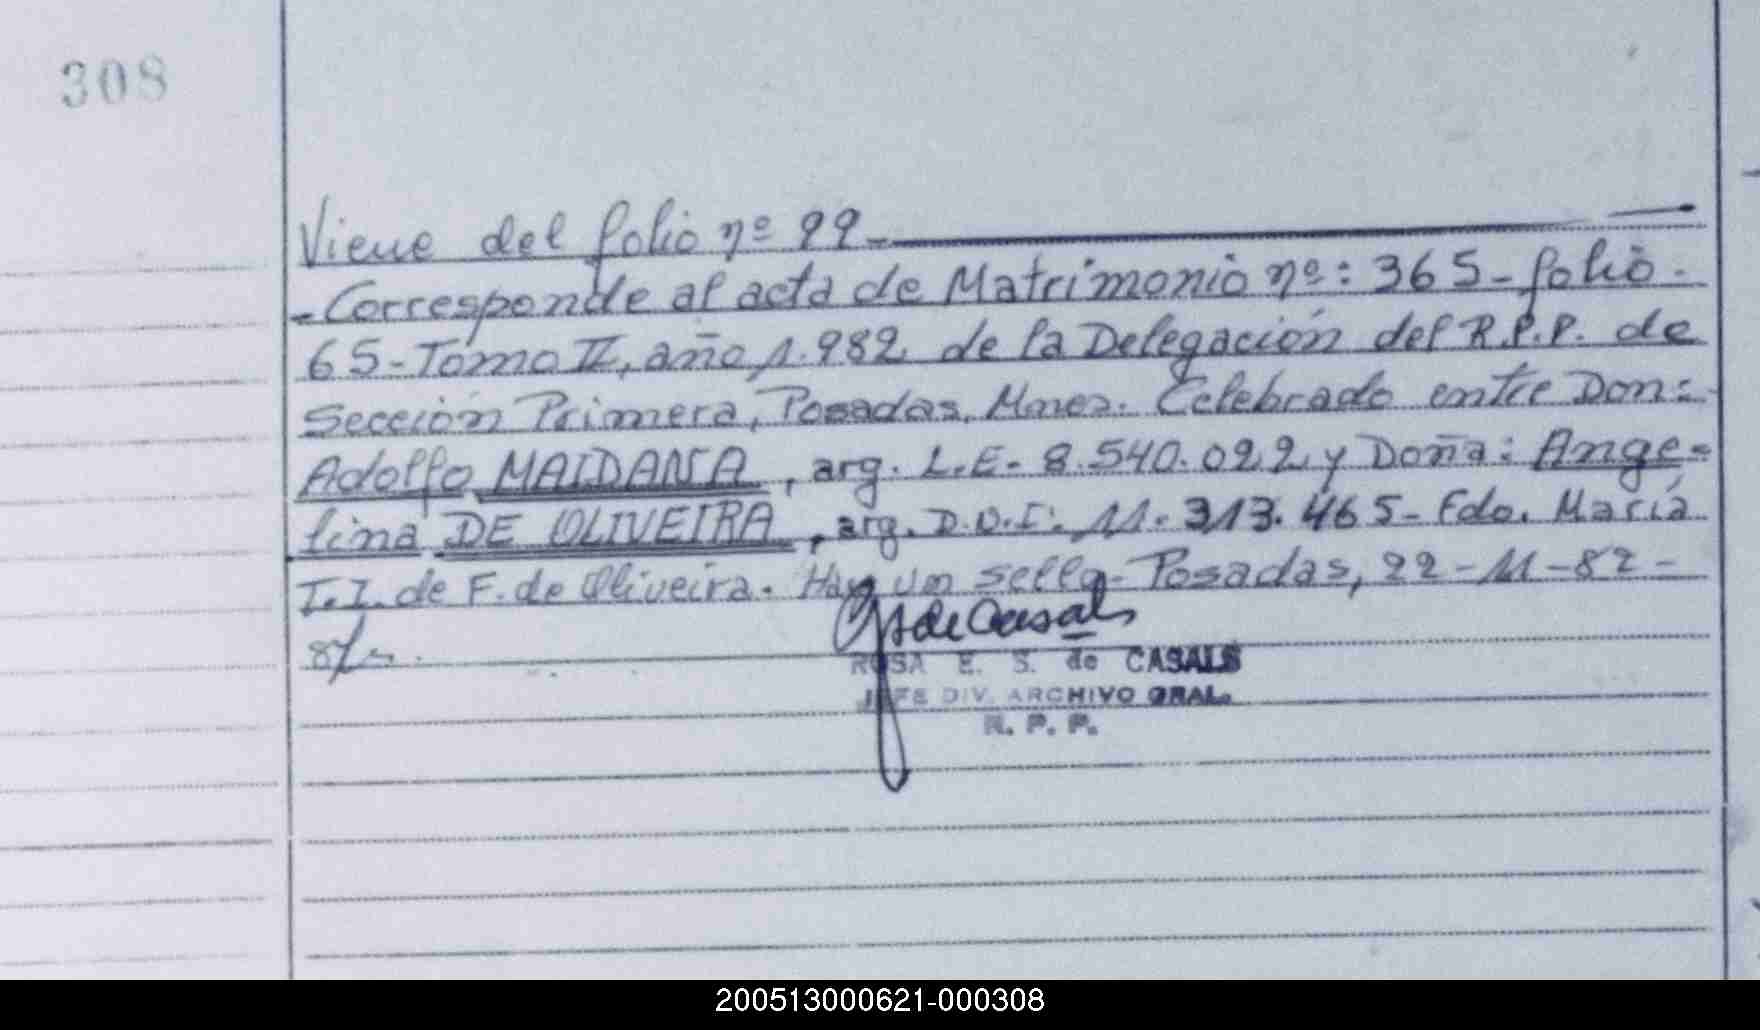 308
Viene del folio nº 99.
- Corresponde al acta de Matrimonio nº: 365 - folio -
65 - Tomo II, año 1.982 de la Delegación del R.P.P. de
Sección Primera, Posadas, Mnes. Celebrado entre Don:
Adolfo MAIDANA, arg. L.E. 8.540.022 y Doña: Ange-
lina DE OLIVEIRA, arg. D.N.I. 11.313.465 - Fdo. María
T.I. de F. de Oliveira. Hay un sello. Posadas, 22-11-82-
de Casals
ROSA E. S. de CASALS
JEFE DIV. ARCHIVO GRAL.
R. P. P.
200513000621-000308